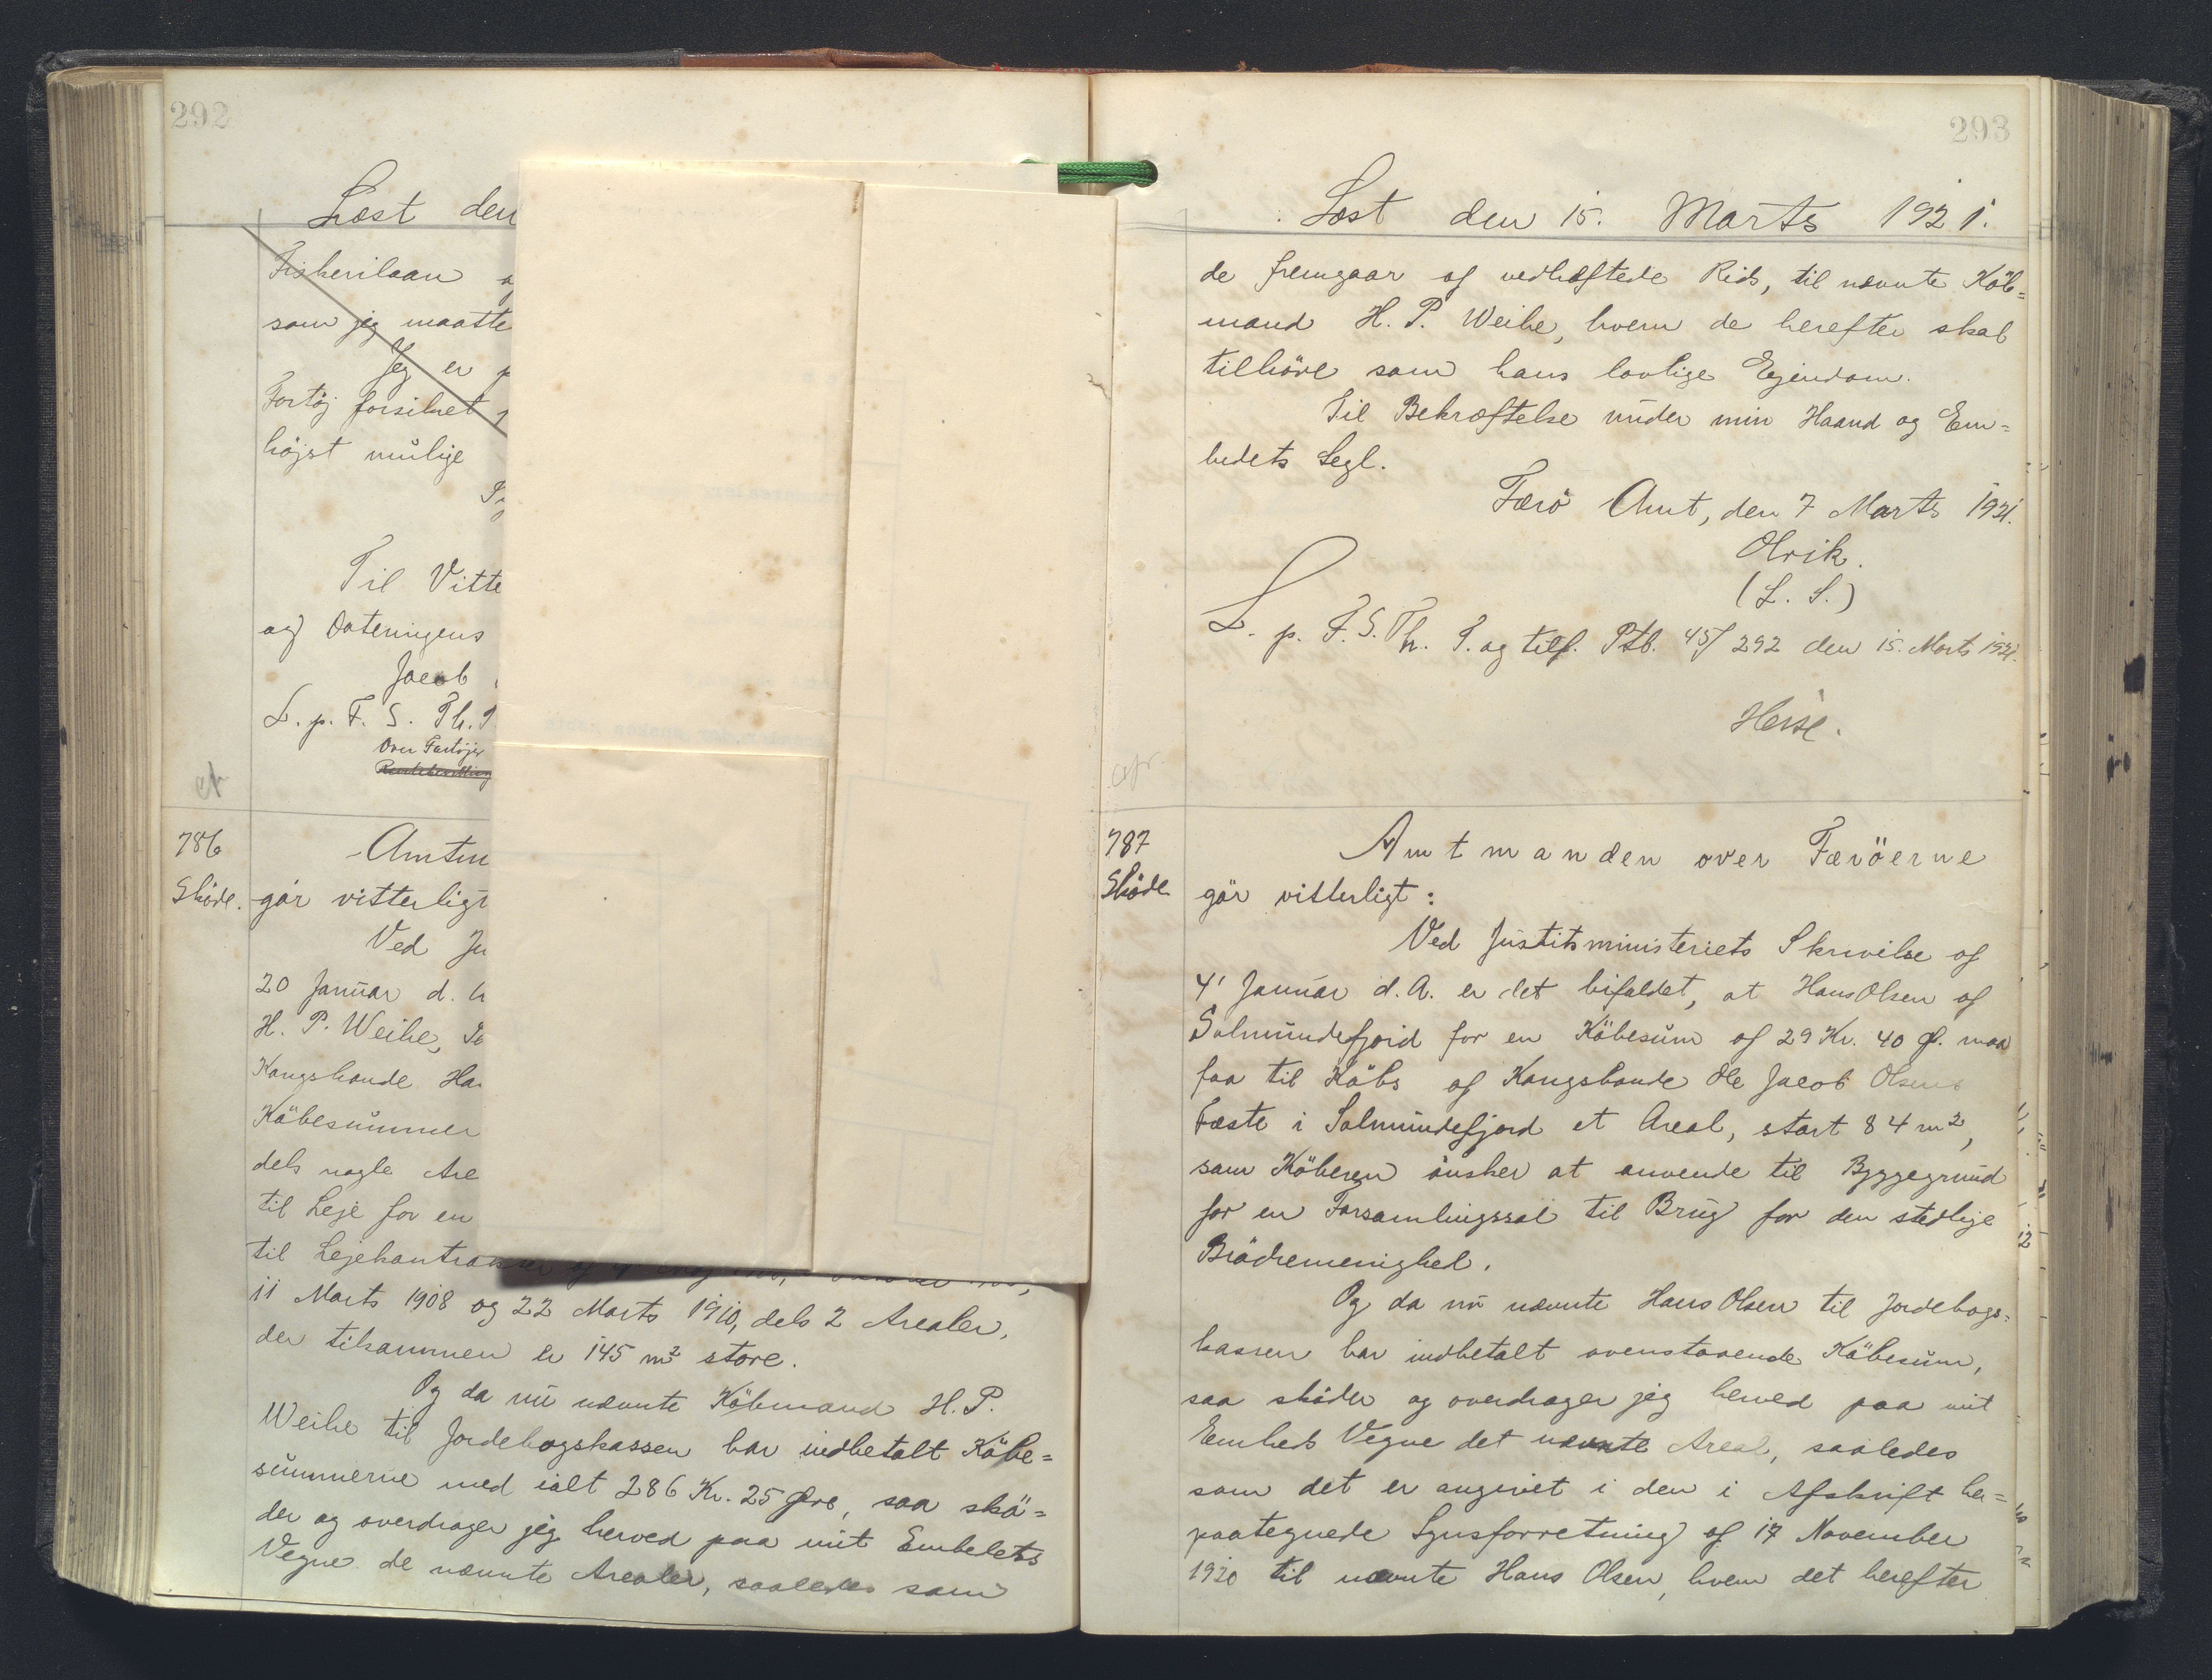 292
Læst den
Fiskerilaan
som jeg maatte
Jeg er
Fartöj forsikret
höjst mulige
Til Vitte
og Dateringens
Jacob
L. p. F. S. Th. T.
Over Fartöjer
786
Sköde.
Amtm
gör vitterligt
Ved Ju
20 Januar d.
H. P. Weihe,
Kongsbonde Ha
Köbesummer
dels nogle Are
til Leje for en
til Lejekontrakter af
11 Marts 1908 og 22 Marts 1910, dels 2 Arealer,
der tilsammen er 145 m² store.
Og da nu nævnte Köbmand H. P.
Weihe til Jordebogskassen har indbetalt Köbe=
summerne med ialt 286 Kr. 25 Øre, saa skö=
der og overdrager jeg herved paa mit Embedets
Vegne de nævnte Arealer, saaledes som
293
Læst den 15. Marts 1921.
de fremgaar af vedhæftede Rids, til nævnte Köb=
mand H. P. Weihe, hvem de herefter skal
tilhöre som hans lovlige Ejendom.
Til Bekræftelse under min Haand og Em=
bedets Segl.
Færö Amt, den 7 Marts 1921.
Olrik.
(L. S.)
L. p. F. S. Th. T. og tilf. Ptb. 45/292 den 15. Marts 1921.
Heise.
787
Sköde
Amtmanden over Færöerne
gör vitterligt:
Ved Justitsministeriets Skrivelse af
4' Januar d. A. er det bifaldet, at Hans Olsen af
Solmundefjord for en Köbesum af 29 Kr. 40 Ø. maa
faa til Köbs af Kongsbonde Ole Jacob Olsens
Fæste i Solmundefjord et Areal, stort 84 m²,
som Köberen önsker at anvende til Byggegrund
for en Forsamlingssal til Brug for den stedlige
Brödremenighed.
Og da nu nævnte Hans Olsen til Jordebogs=
kassen har indbetalt ovenstaaende Köbesum,
saa sköder og overdrager jeg herved paa mit
Embeds Vegne det nævnte Areal, saaledes
som det er angivet i den i Afskrift her=
paategnede Synsforretning af 17 November
1920 til nævnte Hans Olsen, hvem det herefter